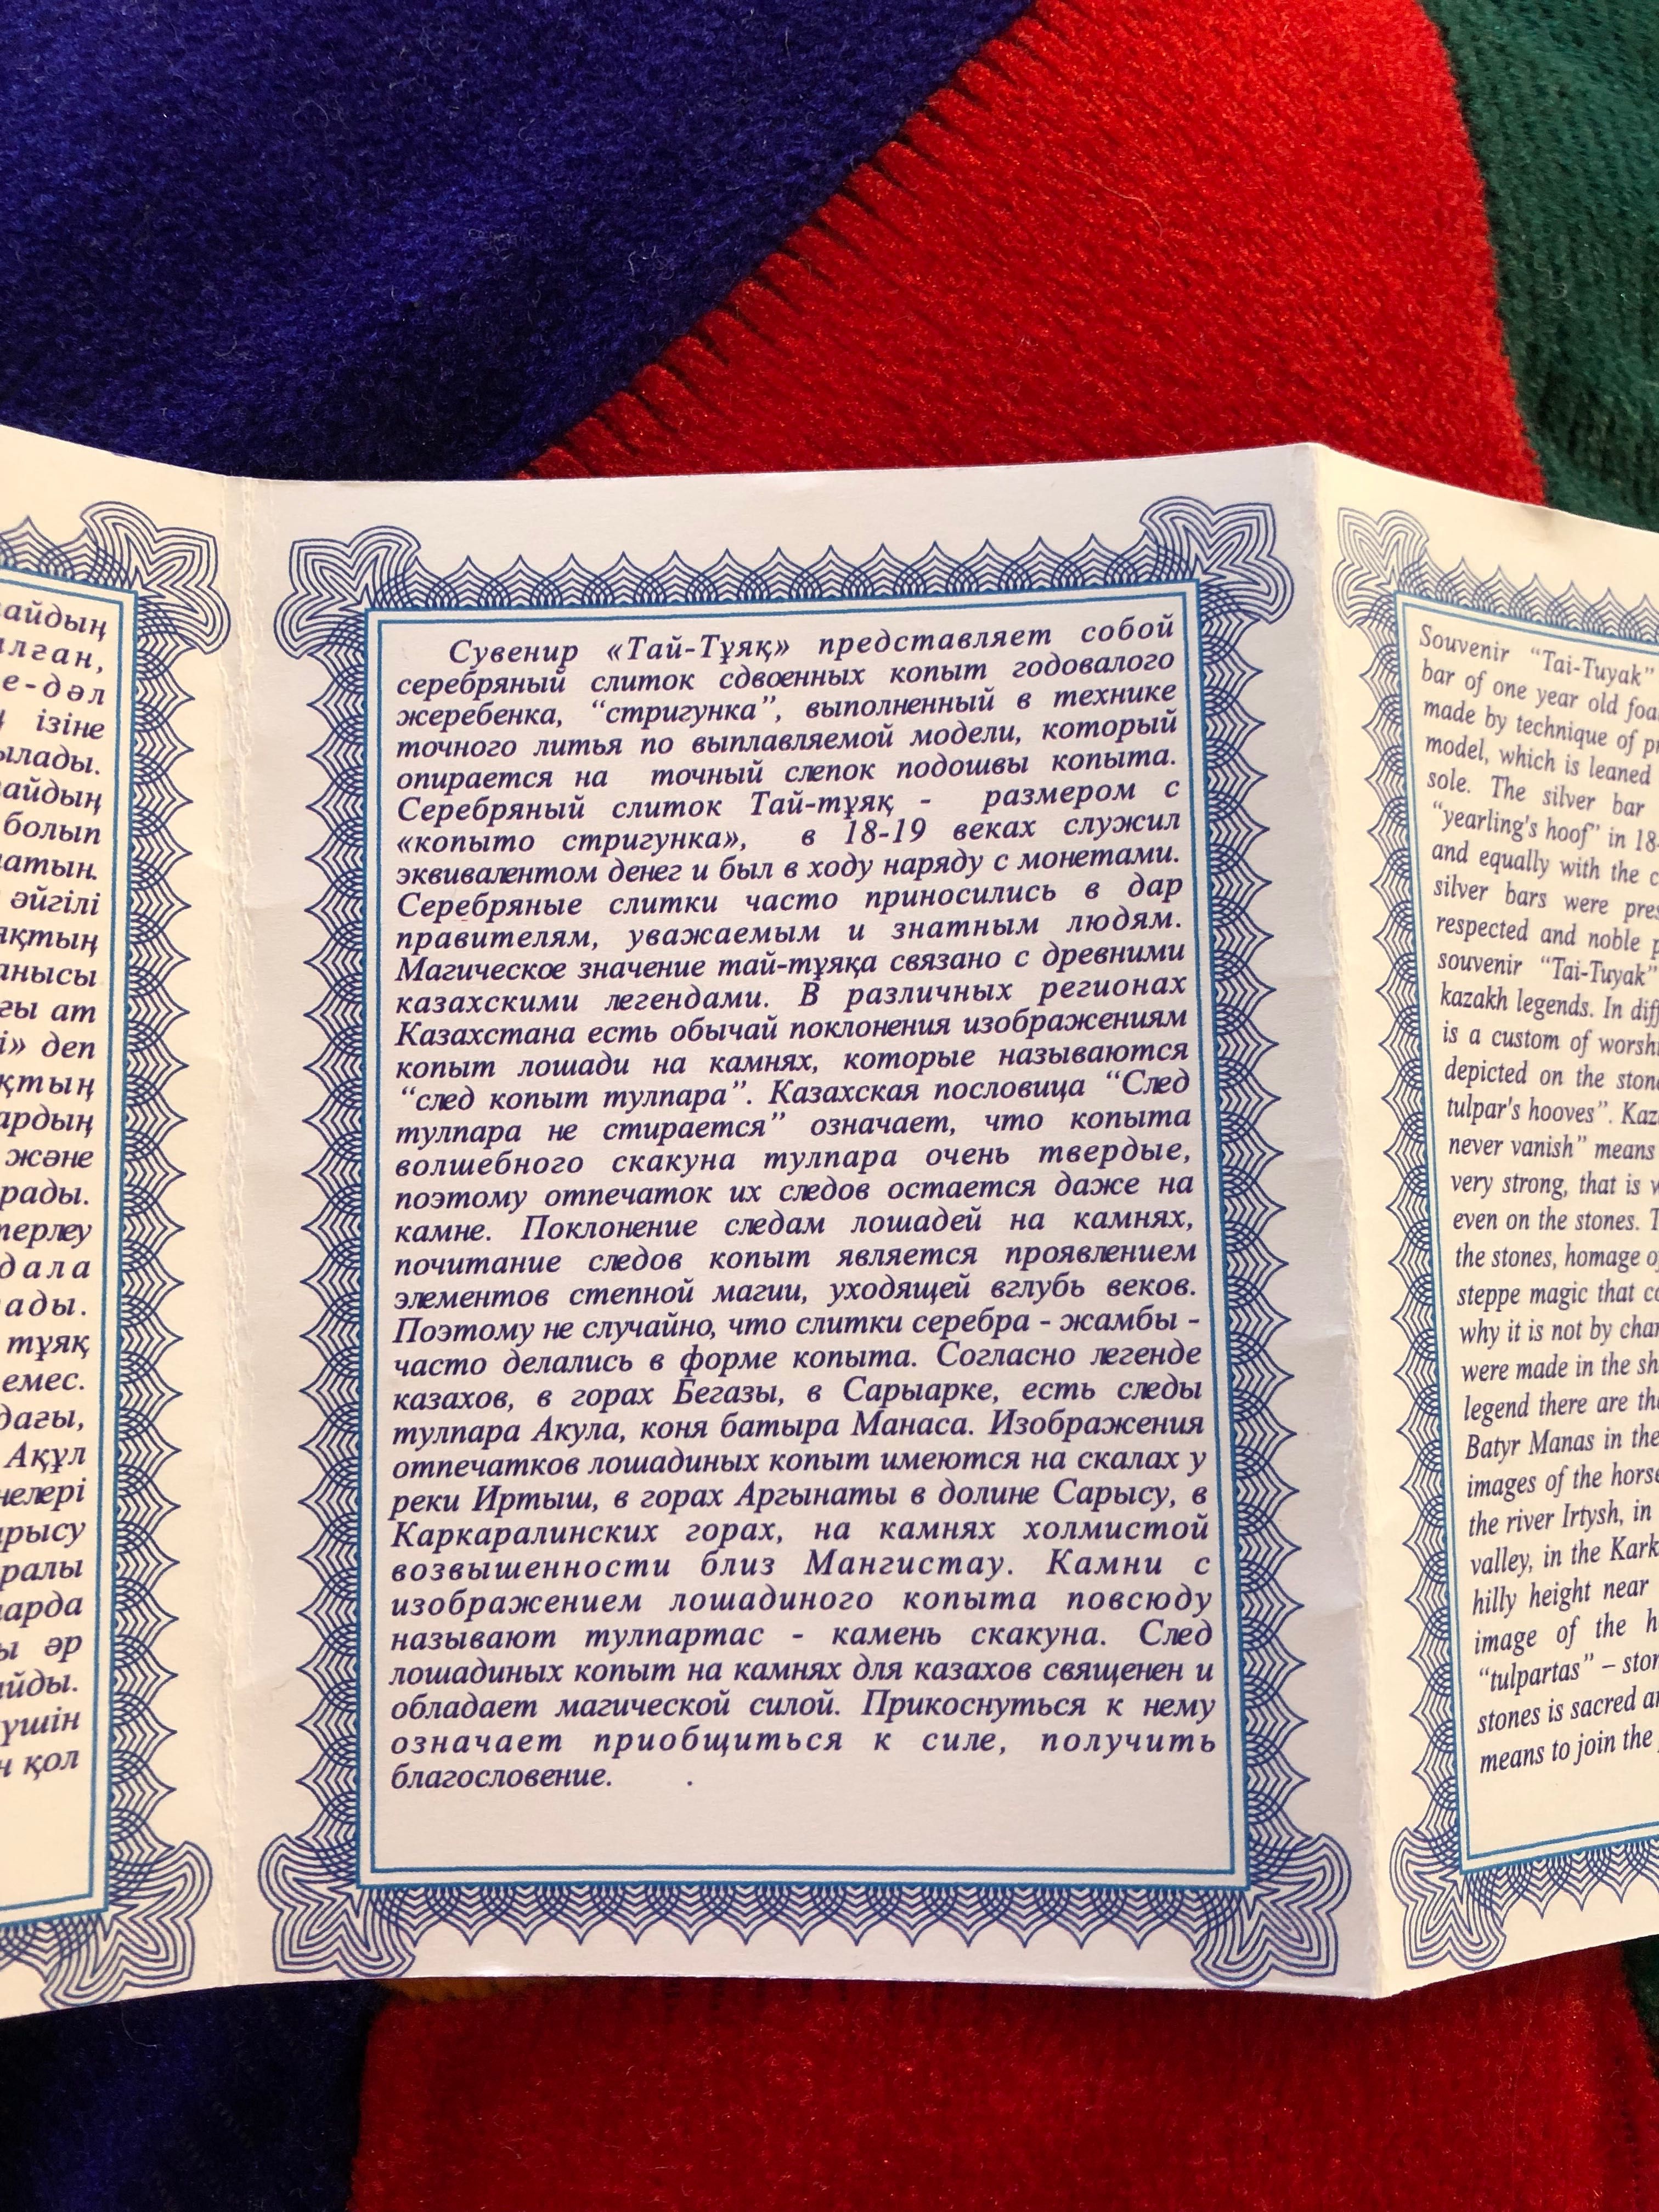 ізіне
болып
әйгілі
ат
деп
және
дала
тұяқ
емес.
Ақұл
әр
үшін
қол
Сувенир «Тай-Тұяқ» представляет собой
серебряный слиток сдвоенных копыт годовалого
жеребенка, “стригунка”, выполненный в технике
точного литья по выплавляемой модели, который
опирается на точный слепок подошвы копыта.
Серебряный слиток Тай-тұяқ - размером с
«копыто стригунка», в 18-19 веках служил
эквивалентом денег и был в ходу наряду с монетами.
Серебряные слитки часто приносились в дар
правителям, уважаемым и знатным людям.
Магическое значение тай-тұяқа связано с древними
казахскими легендами. В различных регионах
Казахстана есть обычай поклонения изображениям
копыт лошади на камнях, которые называются
“след копыт тулпара”. Казахская пословица “След
тулпара не стирается” означает, что копыта
волшебного скакуна тулпара очень твердые,
поэтому отпечаток их следов остается даже на
камне. Поклонение следам лошадей на камнях,
почитание следов копыт является проявлением
элементов степной магии, уходящей вглубь веков.
Поэтому не случайно, что слитки серебра - жамбы -
часто делались в форме копыта. Согласно легенде
казахов, в горах Бегазы, в Сарыарке, есть следы
тулпара Акула, коня батыра Манаса. Изображения
отпечатков лошадиных копыт имеются на скалах у
реки Иртыш, в горах Аргынаты в долине Сарысу, в
Каркаралинских горах, на камнях холмистой
возвышенности близ Мангистау. Камни с
изображением лошадиного копыта повсюду
называют тулпартас - камень скакуна. След
лошадиных копыт на камнях для казахов священен и
обладает магической силой. Прикоснуться к нему
означает приобщиться к силе, получить
благословение.
Souvenir “Tai-Tuyak”
bar of one year old
made by technique of
model, which is leaned
sole. The silver bar
“yearling's hoof” in
and equally with the
silver bars were
respected and noble
souvenir “Tai-Tuyak”
kazakh legends. In
is a custom of
depicted on the
tulpar's hooves”.
never vanish” means
very strong, that is
even on the stones.
the stones, homage
steppe magic that
why it is not by
were made in the
legend there are
Batyr Manas in the
images of the
the river Irtysh, in
valley, in the
hilly height near
image of the
“tulpartas” –
stones is sacred
means to join the